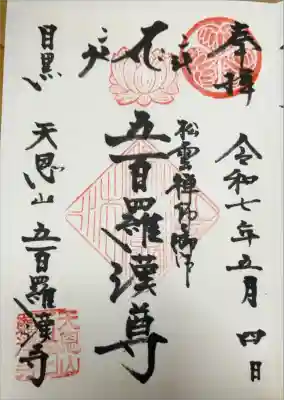 奉拝
令和七年五月四日
松雲禅師御作
五百羅漢尊
目黒
天恩山五百羅漢寺
天恩山